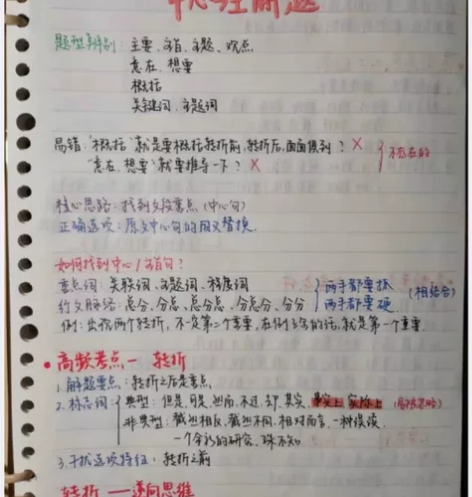 中心理解题
题型辨别：主要、主旨、主题、观点
意在、想要
概括
关键词、主题词
易错："概括"就是要概括转折前、转折后，面面俱到？ ×
"意在、想要"就要推导一下？ × 不存在的
核心思路：找到文段重点（中心句）
正确选项：原文中心句的同义替换.
如何找到中心/主旨句？
重点词：关联词、主题词、程度词 两手都要抓
行文脉络：总分、分总、总分总、分总分、分分 两手都要硬. （相结合）
例：出现两个转折，不一定第二个重要，在例子后的话，就是第一个重要
• 高频考点一 转折
1. 解题要点：转折之后是重点
2. 标志词： 典型：但是、可是、然而、不过、却、其实、事实上、实际上
非典型：截然相反、截然不同、相对而言、一种误读、
一个全新的研究、殊不知
3. 干扰选项特征：转折之前
转折 —— 逆向思维